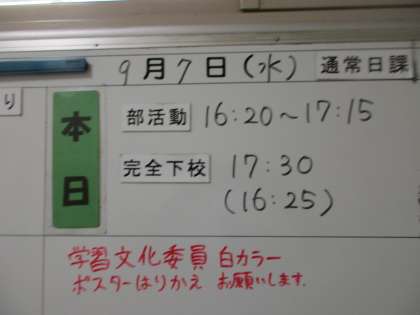 9月7日(水) 通常日課
り
本日
部活動 16:20～17:15
完全下校 17:30
(16:25)
学習文化委員 白カラー
ポスターはりかえ お願いします.